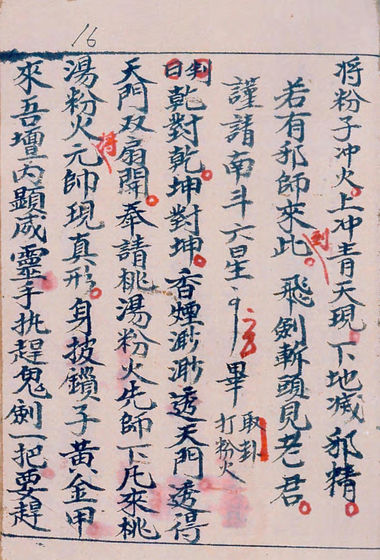 16
将粉子冲火。上冲青天現。下地滅邪精。
若有邪師來此到。飛劍斬頭見老君。
謹請南斗六星 畢 取卦 打粉火
判曰 乾對乾。坤對坤。香煙渺渺透天門。透得
天門双扇開。奉請桃湯粉火先師下凡來桃
湯粉火元帥現真形。身披鎖子黃金甲
來吾壇內顯威靈手执趕鬼劍一把要趕